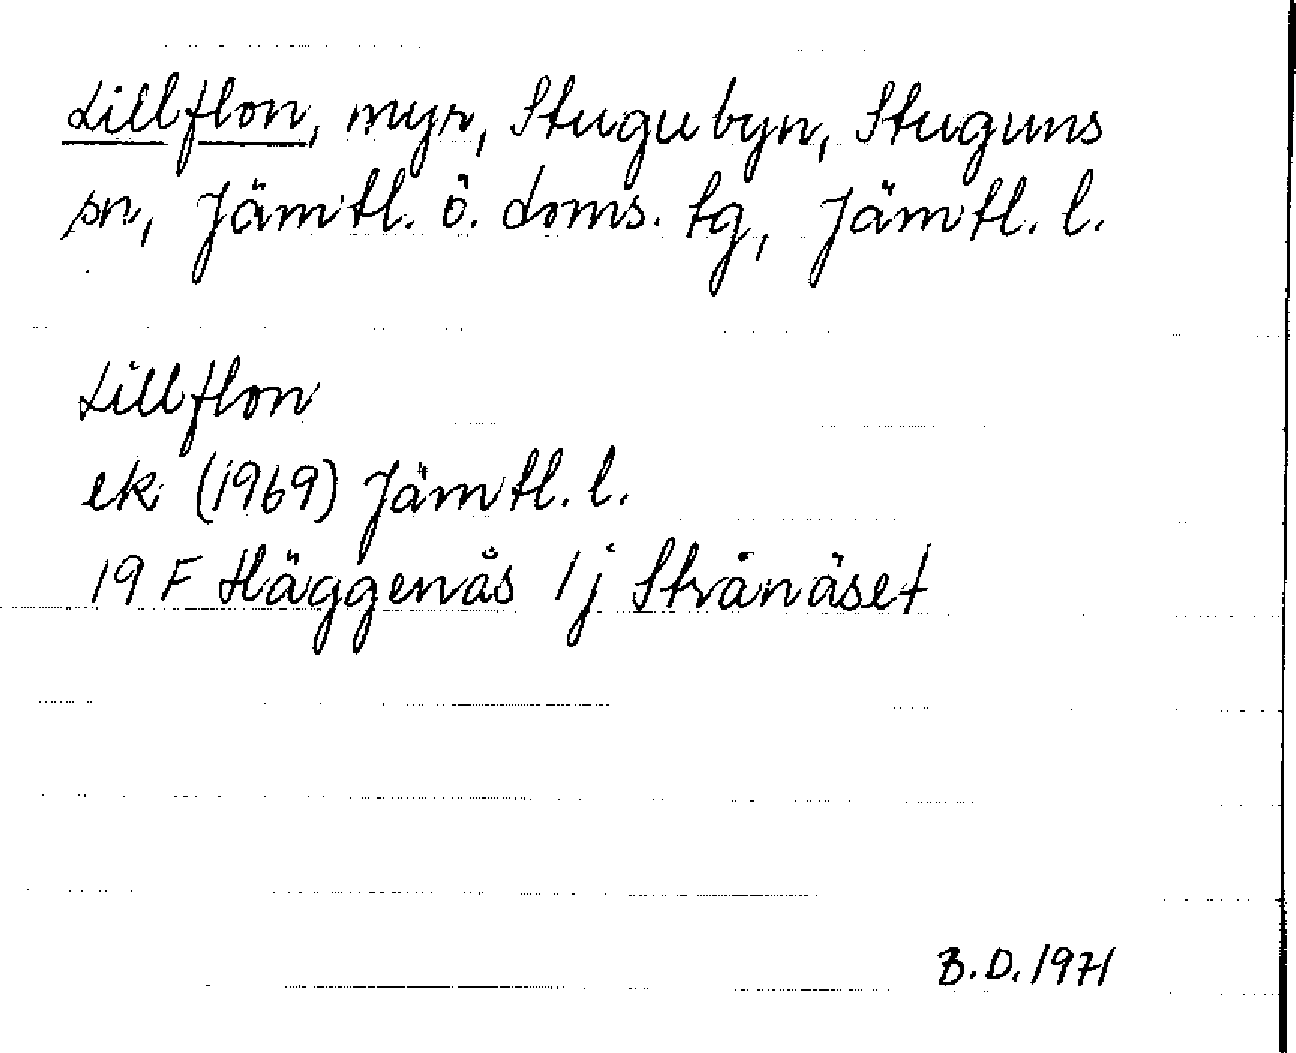 Lillflon, myr, Stugubyn, Stuguns
sn, Jämtl. ö. doms. tg, Jämtl. l.
Lillflon
ek (1969) Jämtl. l.
19 F Häggenås 1j Strånäset
B.D. 1971